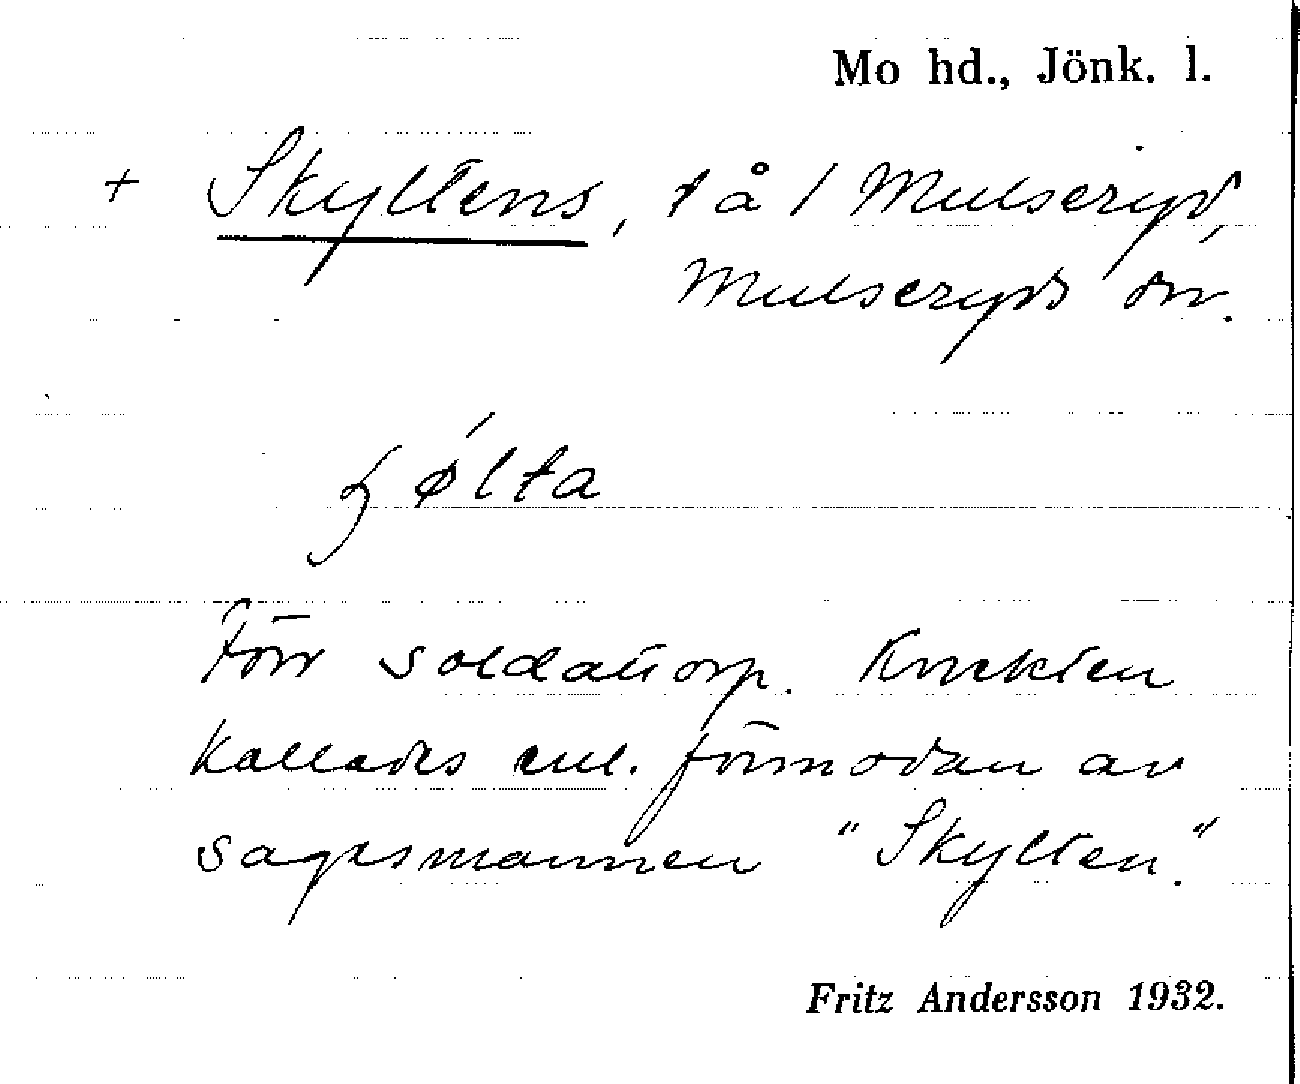 Mo hd., Jönk. l.
+ Skyltens, t å / Mulseryd,
Mulseryds sn.
ølta
Förr soldattorp. Knekten
kallades enl. förmodan av
sagesmannen "Skylten".
Fritz Andersson 1932.